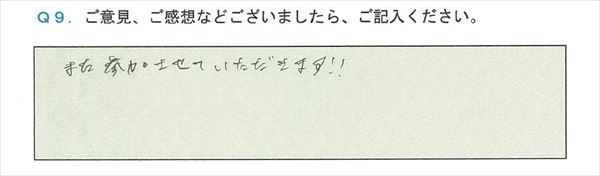 Q9. ご意見、ご感想などございましたら、ご記入ください。
また参加させていただきます!!